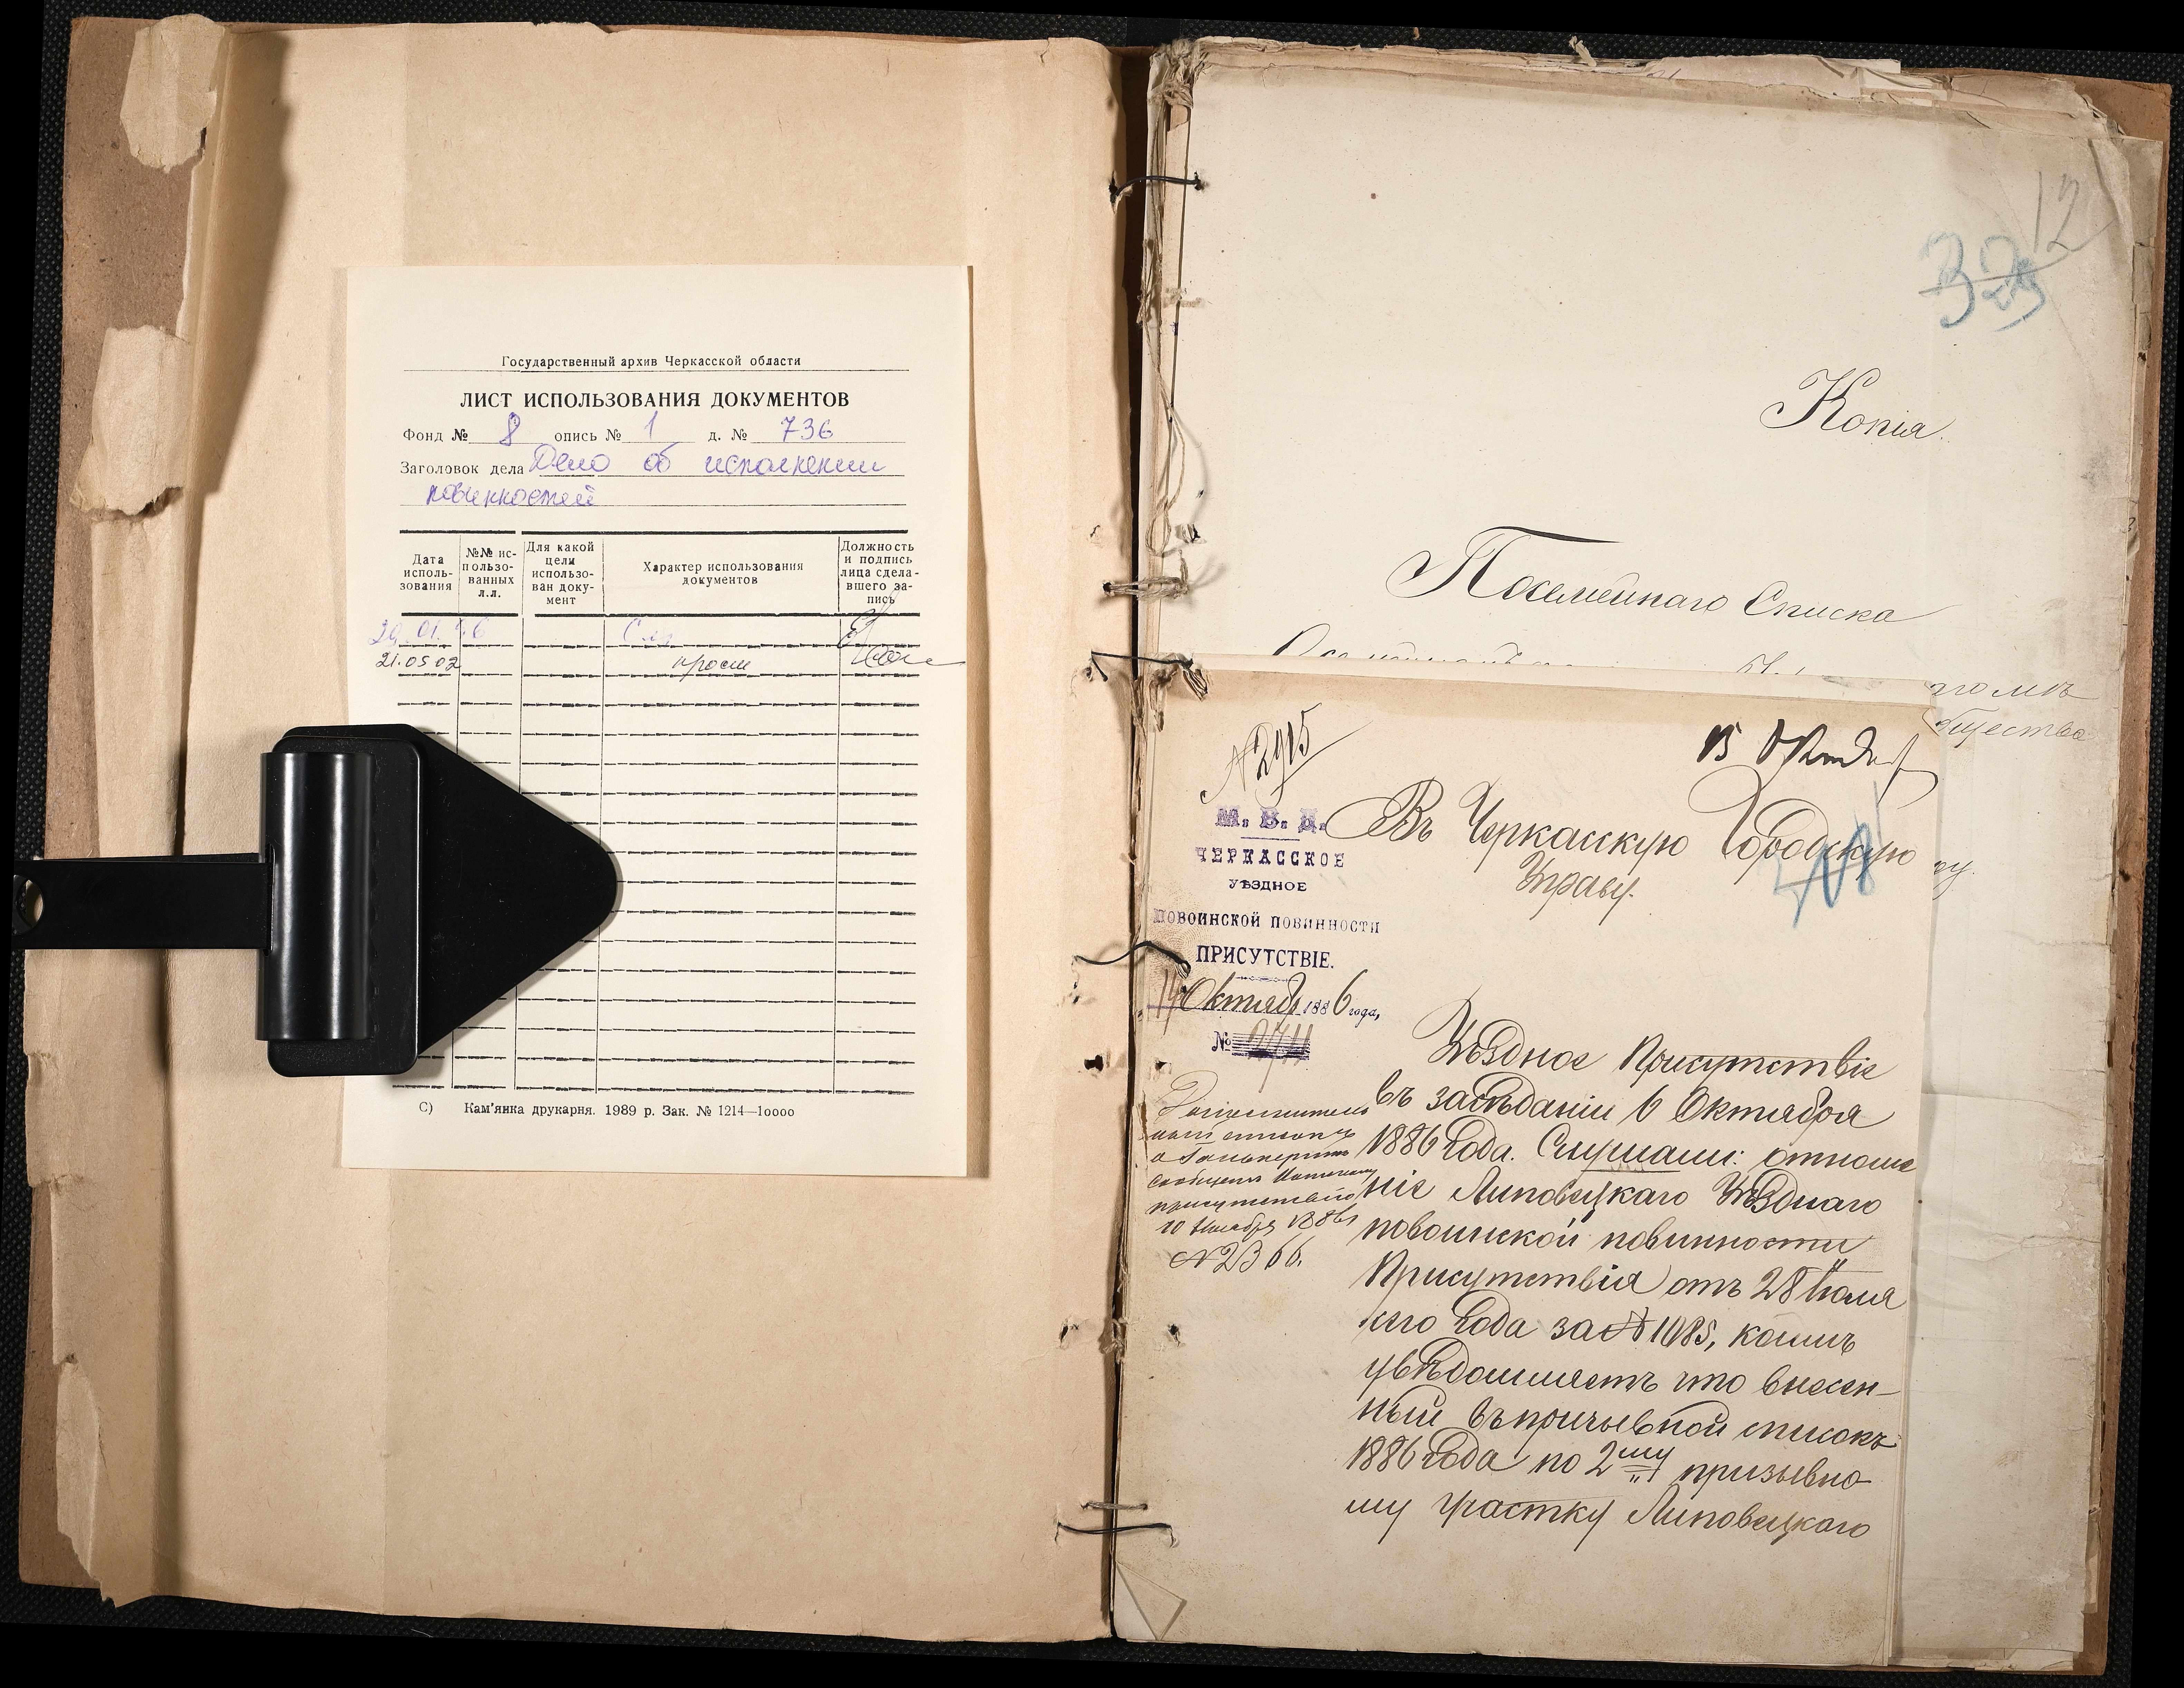 Государственный архив Черкасской области
ЛИСТ ИСПОЛЬЗОВАНИЯ ДОКУМЕНТОВ
Фонд № 8 опись № 1 д. № 736
Заголовок дела Дело об исполнении
повинностей
Дата исполь-зования
№№ ис-пользо-ванных л.л.
Для какой цели использо-ван доку-мент
Характер использования документов
Должность и подпись лица сдела-вшего за-пись
21.05.02 просм
С) Кам'янка друкарня. 1989 р. Зак. № 1214—10000
12
Копія.
Посемейнаго Списка
общества
15 Октяб
М. В. Д.
ЧЕРКАССКОЕ
УѢЗДНОЕ
ПОВОИНСКОЙ ПОВИННОСТИ
ПРИСУТСТВІЕ.
14 Октября 1886 года,
№ 2711
Въ Черкасскую Городскую
Управу.
Уѣздное Присутствіе
въ засѣданіи 6 Октября
1886 Года. Слушали: отноше
ніе Липовецкаго Уѣзднаго
повоинской повинности
Присутствія отъ 28 Іюля
сего Года за № 1085, коимъ
увѣдомляетъ что внесен-
ный въ призывной списокъ
1886 Года по 2му призывно
му участку Липовецкаго
сообщено
присутствію
10 Ноября 1886 г
№ 2366.